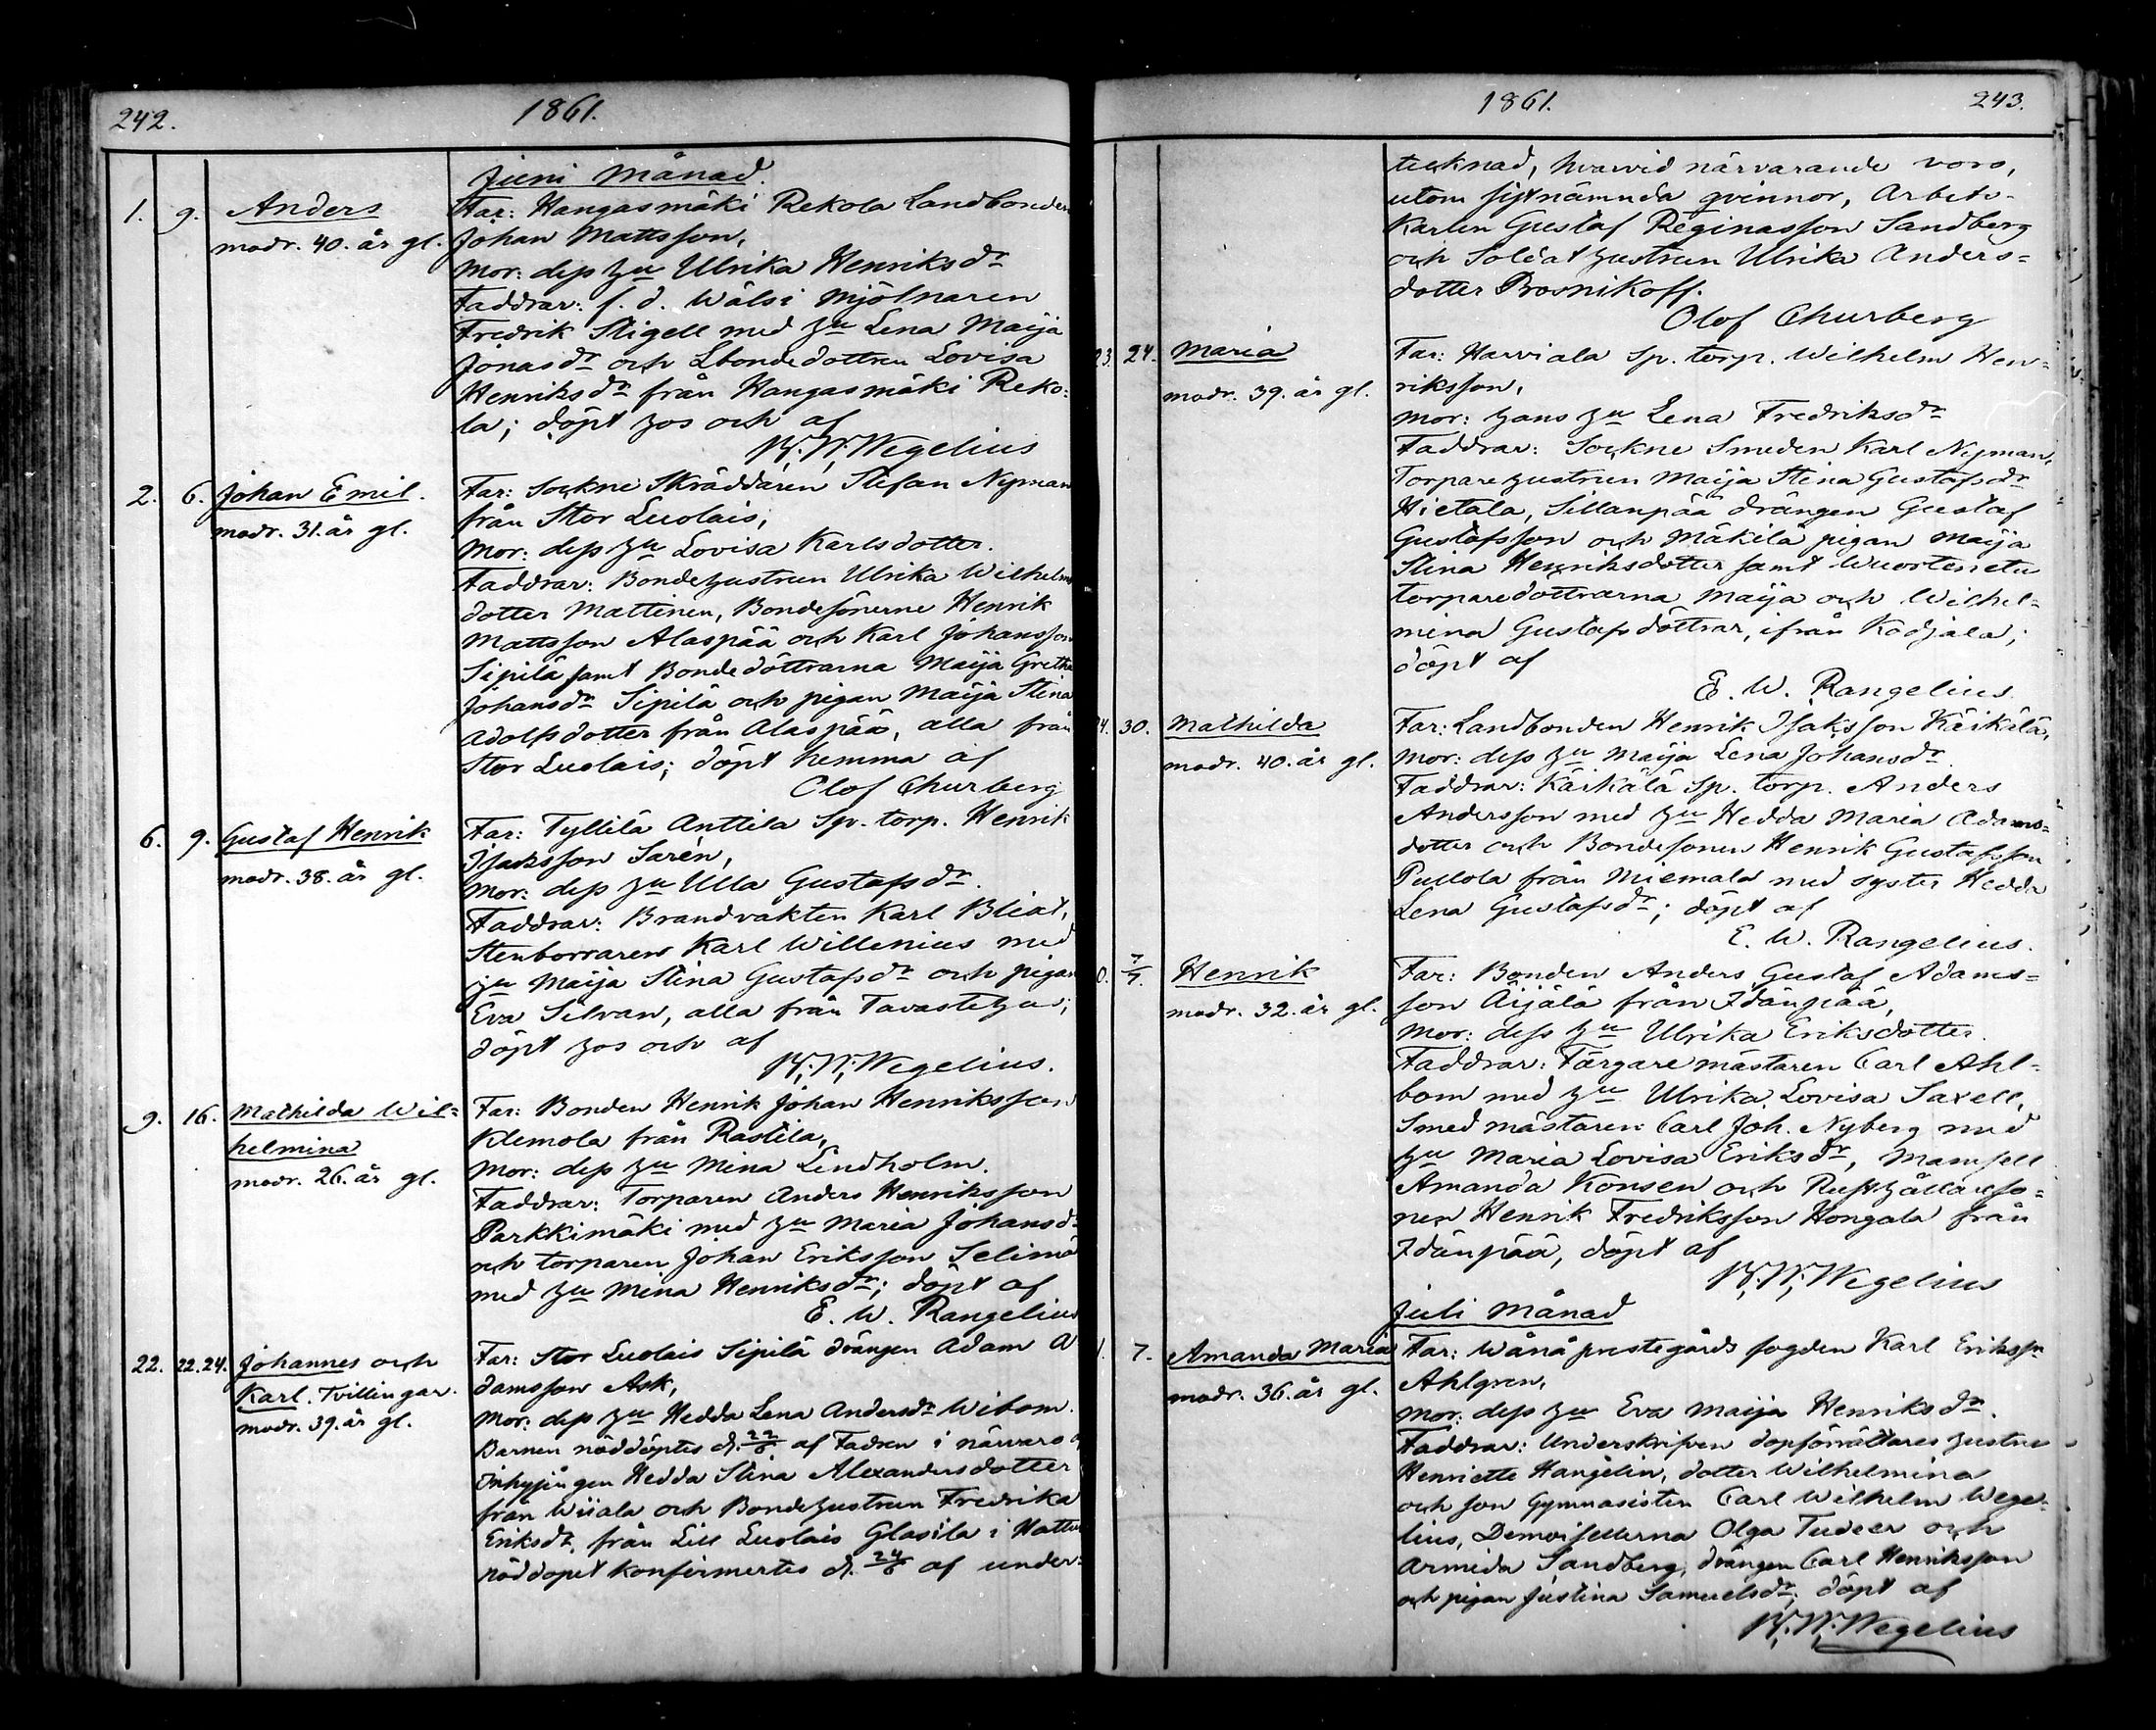 242.
1861.
Juni Månad.
1. 9. Anders
modr. 40. år gl.
Far: Hangasmäki Rekola Landbonden
Johan Mattsson,
Mor: dess hu Ulrika Henriksdr
Faddrar: f. d. Wälsi Mjölnaren
Fredrik Stigell med hu Lena Maija
Jonasdr och Lbondedottren Lovisa
Henriksdr från Hangasmäki Reko-
la; döpt hos och af
W. Wegelius
2. 6. Johan Emil.
modr. 31. år gl.
Far: Sockne Skräddaren Stefan Nyman
från Stor Luolais,
Mor: dess hu Lovisa Karlsdotter.
Faddrar: Bondehustrun Ulrika Wilhelms
dotter Mattinen, Bondesönerne Henrik
Mattsson Alaspää och Karl Johansson
Sipilä samt Bondedöttrarna Maija Gretha
Johansdr Sipilä och pigan Maija Stina
Adolfsdotter från Alaspää, alla från
Stor Luolais; döpt hemma af
Olof Churberg
6. 9. Gustaf Henrik
modr. 38. år gl.
Far: Tyllilä Anttila Sp. torp. Henrik
Isaksson Sarén,
Mor: dess hu Ulla Gustafsdr.
Faddrar: Brandvakten Karl Bliat,
Stenborraren Karl Willenius med
hu Maija Stina Gustafsdr och pigan
Eva Silvan, alla från Tavastehus;
döpt hos och af
W. Wegelius.
9. 16. Mathilda Wil-
helmina
modr. 26. år gl.
Far: Bonden Henrik Johan Henriksson
Klemola från Rastila,
Mor: dess hu Mina Lindholm.
Faddrar: Torparen Anders Henriksson
Parkkimäki med hu Maria Johansdr
och torparen Johan Eriksson Selimä
med hu Mina Henriksdr; döpt af
E. W. Rangelius
22. 22. 24. Johannes och
Karl. Tvillingar.
modr. 39. år gl.
Far: Stor Luolais Sipilä drängen Adam A
damsson Ask,
Mor: dess hu Hedda Lena Andersdr Wibom.
Barnen nöddöptes d. 22/6 af Fadren i närvaro
Inhysingen Hedda Stina Alexandersdotter
från Wiiala och Bondehustrun Fredrika
Eriksdr, från Lill Luolais Glasila i Hattu
nöddopet konfirmertes d. 24/6 af under-
1861.
243.
tecknad, hvarvid närvarande voro,
utom sistnämnda qvinnor, Arbets-
Karlen Gustaf Reginasson Sandberg
och Soldathustrun Ulrika Anders-
dotter Prosnikoff.
Olof Churberg
23. 24. Maria
modr. 39. år gl.
Far: Harviala Sp. torp. Wilhelm Hen-
riksson,
Mor: hans hu Lena Fredriksdr
Faddrar: Sockne Smeden Karl Nyman,
Torparehustrun Maija Stina Gustafsdr
Hietala, Sillanpää drängen Gustaf
Gustafsson och Mäkilä pigan Maija
Stina Henriksdotter samt Wuortenetu
torparedöttrarna Maija och Wilhel-
mina Gustafsdöttrar, ifrån Kodjala;
döpt af
E. W. Rangelius.
4. 30. Mathilda
modr. 40. år gl.
Far: Landbonden Henrik Isaksson Käikälä,
Mor: dess hu Maija Lena Johansdr.
Faddrar: Käikälä Sp. torp. Anders
Andersson med hu Hedda Maria Adams-
dotter och Bondesonen Henrik Gustafsson
Pullola från Miemala med syster Hedda
Lena Gustafsdr; döpt af
E. W. Rangelius.
0. 7/7. Henrik
modr. 32. år gl.
Far: Bonden Anders Gustaf Adams-
son Äijälä från Idänpää,
Mor: dess hu Ulrika Eriksdotter.
Faddrar: Färgaremästaren Carl Ahl-
bom med hu Ulrika Lovisa Saxell,
Smedmästaren Carl Joh. Nyberg med
hu Maria Lovisa Eriksdr, Mamsell
Amanda Konsen och Rusthållareso-
nen Henrik Fredriksson Hongala från
Idänpää, döpt af
W. Wegelius
Juli Månad
1. 7. Amanda Maria
modr. 36. år gl.
Far: Wånå prestegårds fogden Karl Eriksson
Ahlgren,
Mor: dess hu Eva Maija Henriksdr.
Faddrar: Underskrifven dopförrättares hustru
Henriette Hangelin, dotter Wilhelmina
och son Gymnasisten Carl Wilhelm Wege-
lius, Demoisellerna Olga Tudeer och
Armida Sandberg, drängen Carl Henriksson
och pigan Justina Samuelsdr; döpt af
W. Wegelius